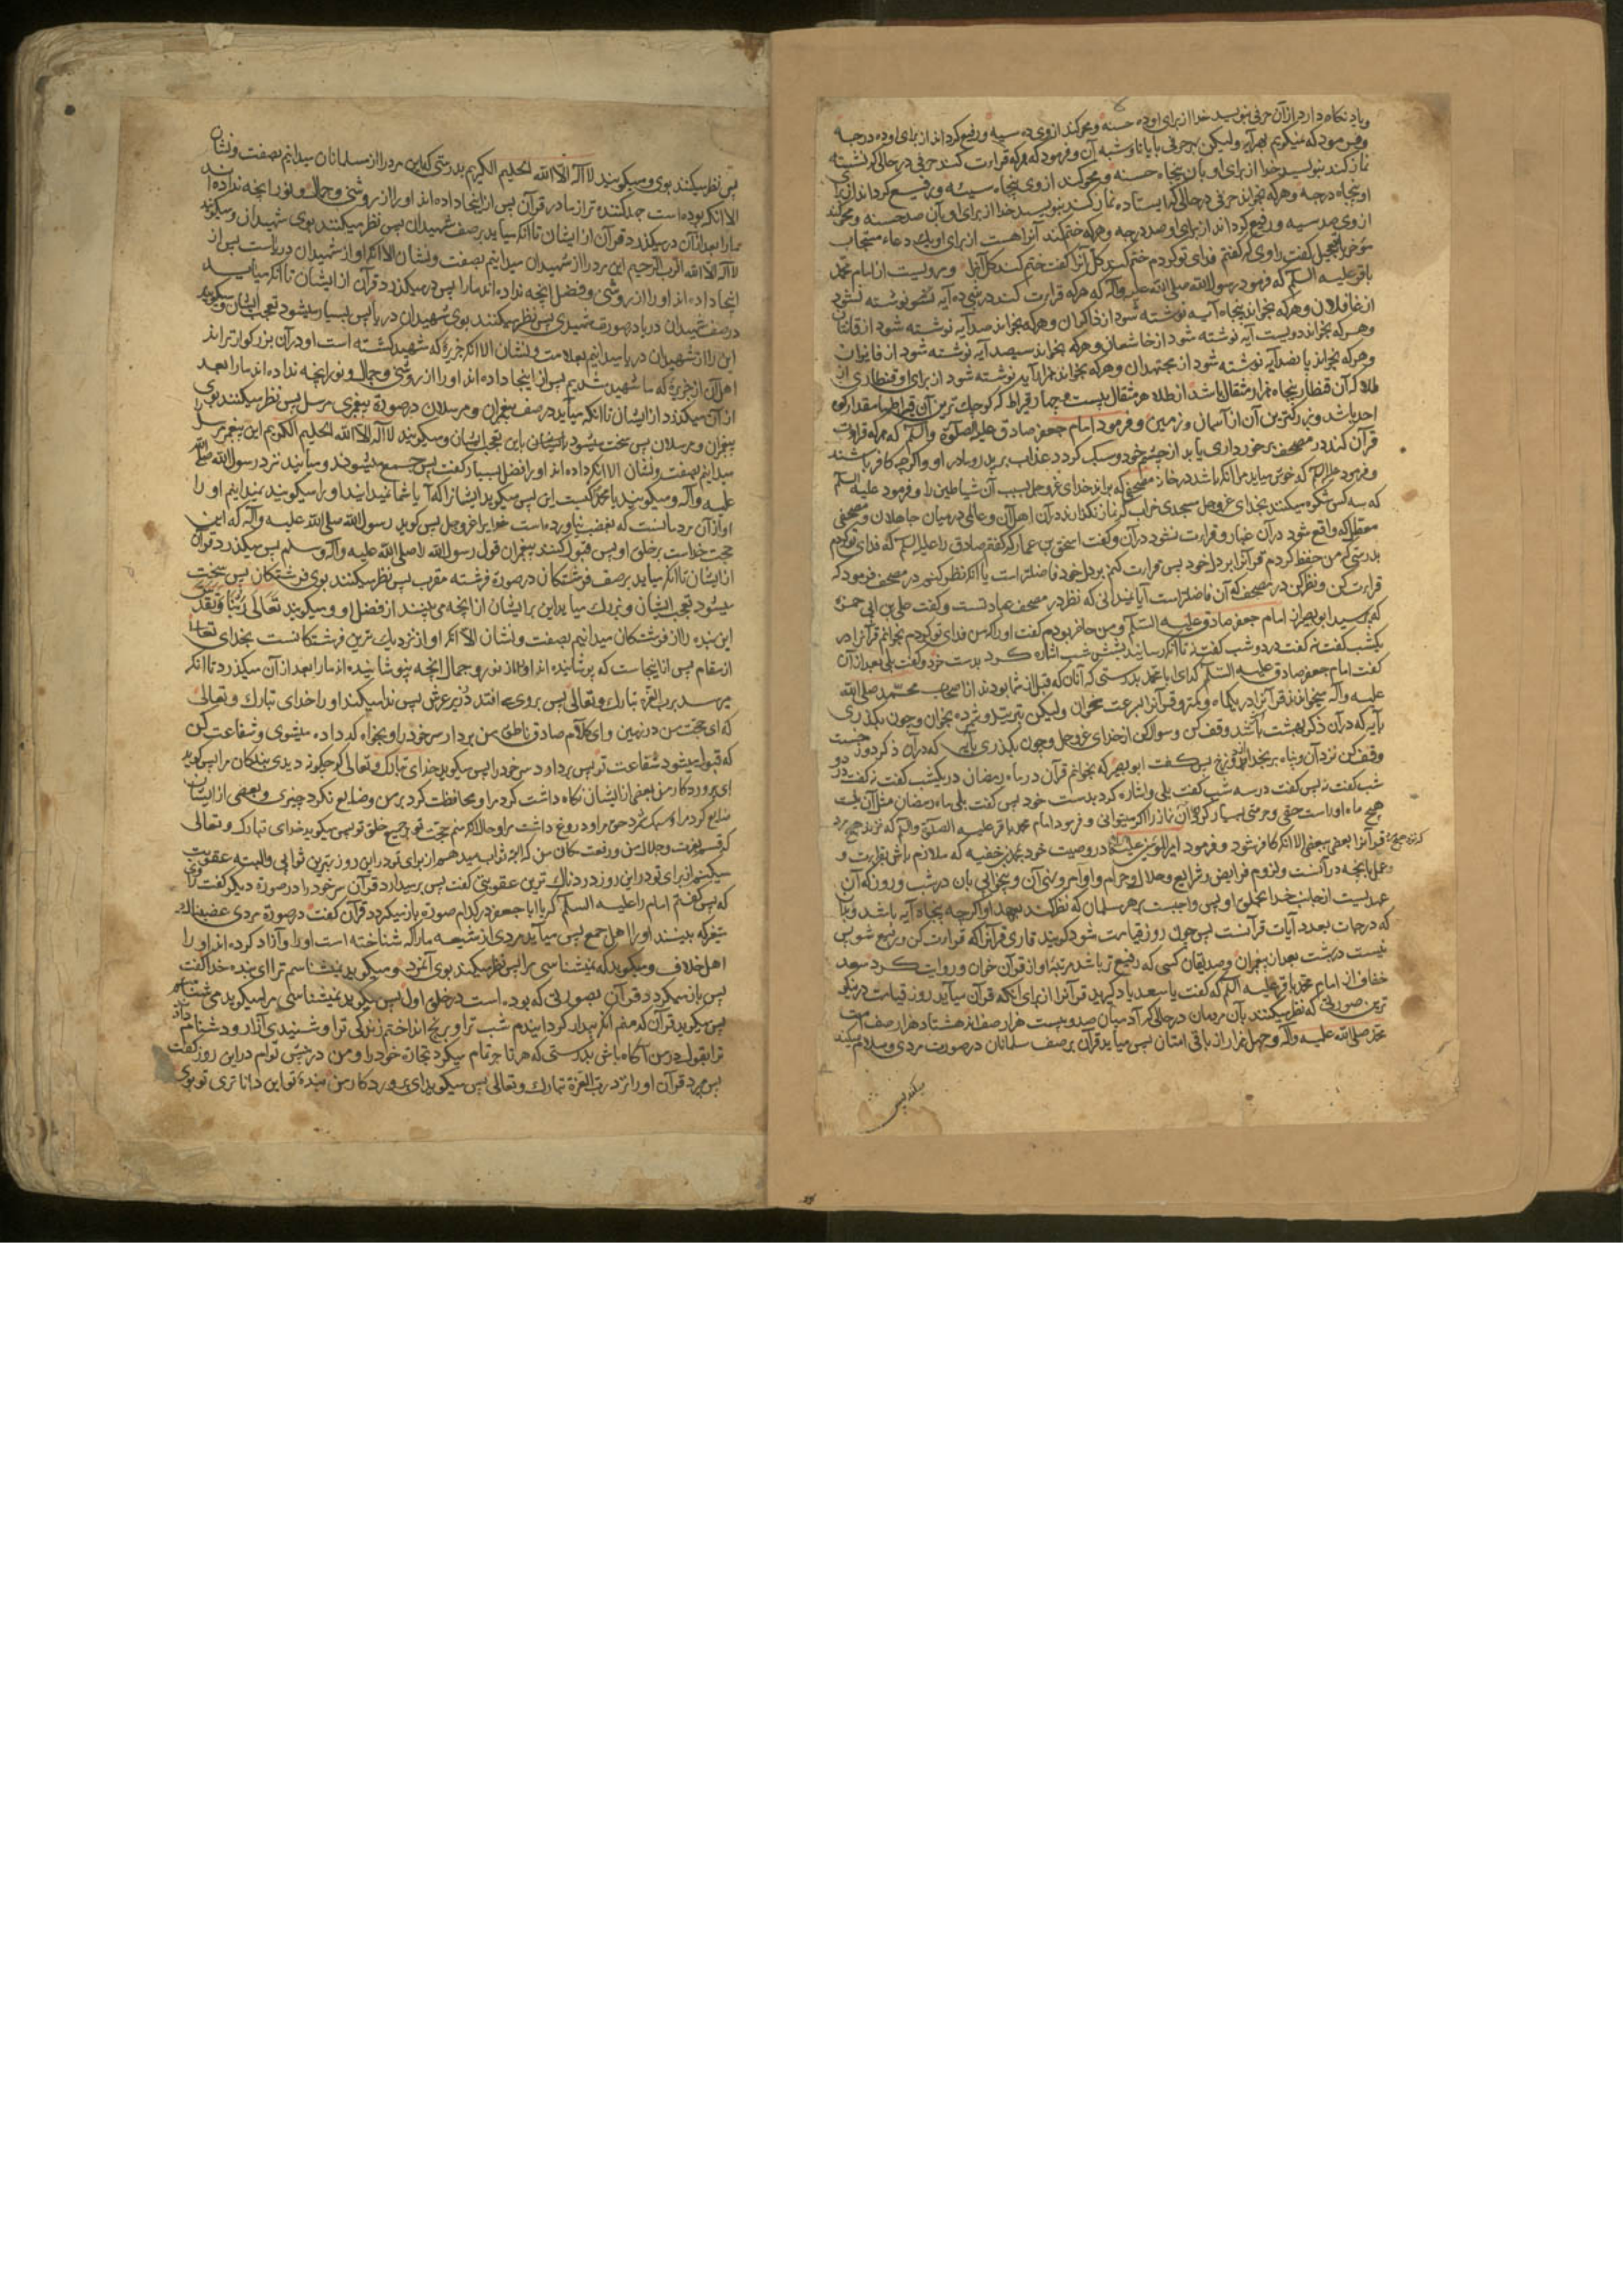 ویاد نکاه دارد از آن حرفی بنویسد خدا از برای او ده حسنه ومحو کند از وی ده سیه ورفیع کرداند از برای او ده درجه
وفرمود که نمیکویم بهر آیه ولیکن بهر حرفی با یا تا وشبه آن وفرمود که هرکه قراءت کند حرفی در حالی که نشسته
نماز کند بنویسد خدا از برای او بان پنجاه حسنه ومحو کند از وی پنجاه سیئه ورفیع کرداند از برا
او پنجاه درجه وهرکه بخواند حرفی در حالی که ایستاده نماز کند بنویسد خدا از برای او بآن صد حسنه ومحو کند
از وی صد سیه ورفیع کرداند از برای او صد درجه وهرکه ختم کند آنرا هست از برای او یک دعاء مستجاب
مؤخر یا معجل کفت راوی که کفتم فدای تو کردم ختم کند کل آنرا کفت ختم کند کل آنرا ومرویست از امام محمد
باقر علیه السلم که فرمود رسول الله صلی الله علیه وآله که هرکه قراءت کند در شبی ده آیه نوشته نشود
از غافلان وهرکه بخواند پنجاه آیه نوشته شود از ذاکران وهرکه بخواند صد آیه نوشته شود از قانتان
وهرکه بخواند دویست آیه نوشته شود از خاشعان وهرکه بخواند سیصد آیه نوشته شود از فایزان
وهرکه بخواند پانصد آیه نوشته شود از مجتهدان وهرکه بخواند هزار آیه نوشته شود از برای او قنطاری از
طلا که آن قنطار پنجاه هزار مثقال باشد از طلا هر مثقال بیست وچهار قیراط که کوچک ترین آن قیراطها مقدار کوه
احد باشد وبزرکترین آن از آسمان وزمین وفرمود امام جعفر صادق علیه الصلوة والسلم که هرکه قراءت
قرآن کند در مصحف برخورداری یابد از چشم خود وسبک کردد عذاب بر پدر ومادر او واکرچه کافر باشند
وفرمود علیه السلم که خوش میاید مرا آنکه باشد در خانه مصحفی که براند خدای عزوجل بسبب آن شیاطین را وفرمود علیه السلم
که سه کس شکوه میکنند بخدای عزوجل مسجدی خراب که نماز نکذارند در آن اهل آن وعالمی در میان جاهلان ومصحفی
معطل که واقع شود در آن غبار وقراءت نشود در آن وکفت اسحق بن عمار که کفتم صادق را علیه السلم که فدای تو کردم
بدرستی که من حفظ کردم قرآنرا بر دل خود پس قراءت کنم بر دل خود فاضلتر است یا آنکه نظر کنم در مصحف فرمود که
قراءت کن ونظر کن در مصحف که آن فاضلتر است آیا نمیدانی که نظر در مصحف عبادتست وکفت علی بن ابی حمزه
که پرسید ابو بصیر از امام جعفر صادق علیه السلم ومن حاضر بودم کفت او را که من فدای تو کردم بخوانم قرآنرا در
یکشب کفت نه کفت در دو شب کفت نه تا آنکه رسانید بشش شب اشاره کرد بدست خود وکفت بلی بعد از آن
کفت امام جعفر صادق علیه السلم که ای ابا محمد بدرستی که آنان که قبل از شما بودند از اصحاب محمد صلی الله
علیه وآله میخواندند قرآنرا در یکماه وکمتر وقرآنرا بسرعت مخوان ولیکن بترتیل وشمرده بخوان وچون بکذری
بآیه که در آن ذکر بهشت باشد وقف کن وسوال کن از خدای عزوجل وچون بکذری بآیه که در آن ذکر دوزخست
وقف کن نزد آن وپناه بر بخدا از دوزخ پس کفت ابو بصیر که بخوانم قرآن در ماه رمضان در یکشب کفت نه کفت در دو
شب کفت نه پس کفت در سه شب کفت بلی واشاره کرد بدست خود پس کفت بلی ماه رمضان مثل آن نیست
هیچ ماه او راست حقی وحرمتی بسیار کن در آن نماز را اکر میتوانی وفرمود امام محمد باقر علیه الصلوة والسلم که نزند هیچ مرد
قرآنرا بعضی ببعضی الا آنکه کافر شود وفرمود امیرالمؤمنین علیه السلم در وصیت خود بمحمد بن حنفیه که ملازم باش بقراءت و
وعمل بانچه در آنست ولزوم فرایض وشرایع وحلال وحرام واوامر ونهی آن وبخوانی بان در شب وروز که آن
عهدیست از جانب خدا بخلق او پس واجبست بر هر مسلمان که نظر کند بعهد او اکرچه پنجاه آیه باشد وبدان
که درجات بعدد آیات قرآنست پس چون روز قیامت شود کویند قاری قرآنرا که قراءت کن ورفیع شو پس
نیست در بهشت بعد از پیغمبران وصدیقان کسی که رفیع تر باشد مرتبۀ او از قرآن خوان وروایت کرد سعد
خفاف از امام محمد باقر علیه السلم که کفت یا سعد یاد کیرید قرآنرا از برای آنکه قرآن میآید روز قیامت در نیکو
ترین صورتی که نظر میکنند بآن مردمان در حالی که آدمیان صد وبیست هزار صف اند هشتاد هزار صف امت
محمد صلی الله علیه وآله وچهل هزار از باقی امتان پس میآید قرآن بر صف مسلمانان در صورت مردی وسلام میکند
میکند پس
پس نظر میکنند بوی ومیکویند لا اله الا الله الحلیم الکریم بدرستی که این مرد را از مسلمانان میدانیم بصفت ونشان
الا آنکه بوده است جهد کننده تر از ما در قرآن پس از اینجا داده اند او را از روشنی وجمال ونور آنچه نداده اند
ما را بعد از آن درمیکذرد قرآن از ایشان تا آنکه میاید بر صف شهیدان پس نظر میکنند بوی شهیدان ومیکویند
لا اله الا الله الرب الرحیم این مرد را از شهیدان میدانیم بصفت ونشان الا آنکه او از شهیدان دریاست پس از
اینجا داده اند او را از روشنی وفضل آنچه نداده اند ما را پس درمیکذرد قرآن از ایشان تا آنکه میآید
در صف شهیدان دریا در صورت شهیدی پس نظر میکنند بوی شهیدان دریا پس بسیار میشود تعجب ایشان ومیکویند
این را از شهیدان دریا میدانیم بعلامت ونشان الا آنکه جزیرۀ که شهید کشته است او در آن بزرکوارتراند
اهل آن از جزیرۀ که ما شهید شدیم پس از اینجا داده اند او را از روشنی وجمال ونور آنچه نداده اند ما را بعد
از آن میکذرد از ایشان تا آنکه میآید در صف پیغمبران ومرسلان در صورة پیغمبری مرسل پس نظر میکنند بوی
پیغمبران ومرسلان پس سخت میشود باین تعجب ایشان ومیکویند لا اله الا الله الحلیم الکریم این پیغمبر مرسل
میدانیم بصفت ونشان الا آنکه داده اند او را فضل بسیار کفت پس جمع میشوند ومیآیند نزد رسول الله صلی الله
علیه وآله ومیکویند یا محمد کیست این پس میکوید ایشانرا که آیا شما نمیدانید او را میکویند نمیدانیم او را
او از آن مردمانست که بغضب نیاورده است خدایرا عزوجل پس کوید رسول الله صلی الله علیه وآله که این
حجت خداست بر خلق او پس قبول کنند پیغمبران قول رسول الله را صلی الله علیه وآله وسلم پس میکذرد قرآن
از ایشان تا آنکه میاید بر صف فرشتکان در صورة فرشته مقرب پس نظر میکنند بوی فرشتکان پس سخت
میشود تعجب ایشان وبزرک میاید این بر ایشان از آنچه می بینند از فضل او ومیکویند تعالی ربنا وتقدس
این بنده را از فرشتکان میدانیم بصفت ونشان الا آنکه او از نزدیک ترین فرشتکانست بخدای تعالی
از مقام پس از اینجاست که پوشانیده اند او را از نور وجمال آنچه نپوشانیده اند ما را بعد از آن میکذرد تا آنکه
میرسد برب العزة تبارک وتعالی پس بروی می افتد در زیر عرش پس ندا میکند او را خدای تبارک وتعالی
که ای حجت من در زمین وای کلام صادق ناطق من بردار سر خود را وبخواه که داده میشوی وشفاعت کن
که قبول میشود شفاعت تو پس بردارد سر خود را پس میکوید خدای تبارک وتعالی که چکونه دیدی بندکان مرا پس کوید
ای پروردکار من بعضی از ایشان نکاه داشت کرد مرا ومحافظت کرد بر من وضایع نکرد چیزی وبعضی از ایشان
ضایع کرد مرا وسبک شمرد حق مرا ودروغ داشت مرا وحال آنکه منم حجت تو بر جمیع خلق تو پس میکوید خدای تبارک وتعالی
که قسم بعزت وجلال من ورفعت مکان من که البته ثواب میدهم از برای تو در این روز بهترین ثوابی والبته عقوبت
میکنم از برای تو در این روز دردناک ترین عقوبتی کفت پس برمیدارد قرآن سر خود را در صورة دیکر کفت راوی
که پس کفتم امام را علیه السلم که یا ابا جعفر در کدام صورة بازمیکردد قرآن کفت در صورة مردی غضبناک
متغیر که بینند او را اهل جمع پس میآید مردی از شیعه ما را که شناخته است او را وآزاد کرده اند او را
اهل خلاف ومیکوید که نمیشناسی مرا پس نظر میکند بوی آنمرد ومیکوید نمیشناسم ترا ای بنده خدا کفت
پس بازمیکردد قرآن بصورتی که بوده است در خلق اول پس میکوید نمیشناسی مرا میکوید می شناسم
پس میکوید قرآن که منم آنکه بیدار کردانیدم شب ترا وبرنج انداختم زندکی ترا وشنیدی آزار ودشنام داد
ترا بقول در من آکاه باش بدرستی که هر تاجر تمام میکرد تجارة خود را ومن در پس توام در این روز کفت
پس میبرد قرآن او را نزد رب العزة تبارک وتعالی پس میکوید ای پروردکار من بنده تو این داناتری تو بوی